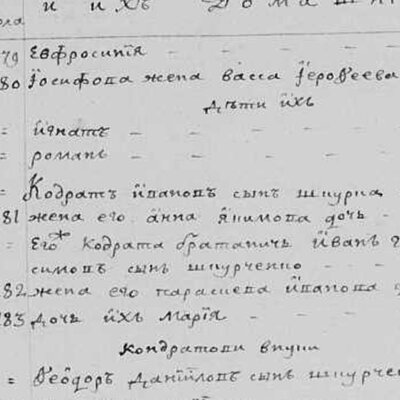 и ихъ Дома
79 Евфросинїя
80 Їосифова жена васса Їерофеева
дѣти їхъ
= їгнатъ
= романъ
= Кодратъ їванопъ сынъ шпурпа
81 жена его анна якимова дочь
= Его Кодрата братаничъ їванъ
симовъ сынъ шпурченко
82 жена его параскева їванова
83 дочь їхъ марїя
кондратови внуки
= Ѳеодоръ данїиловъ сынъ шпурче